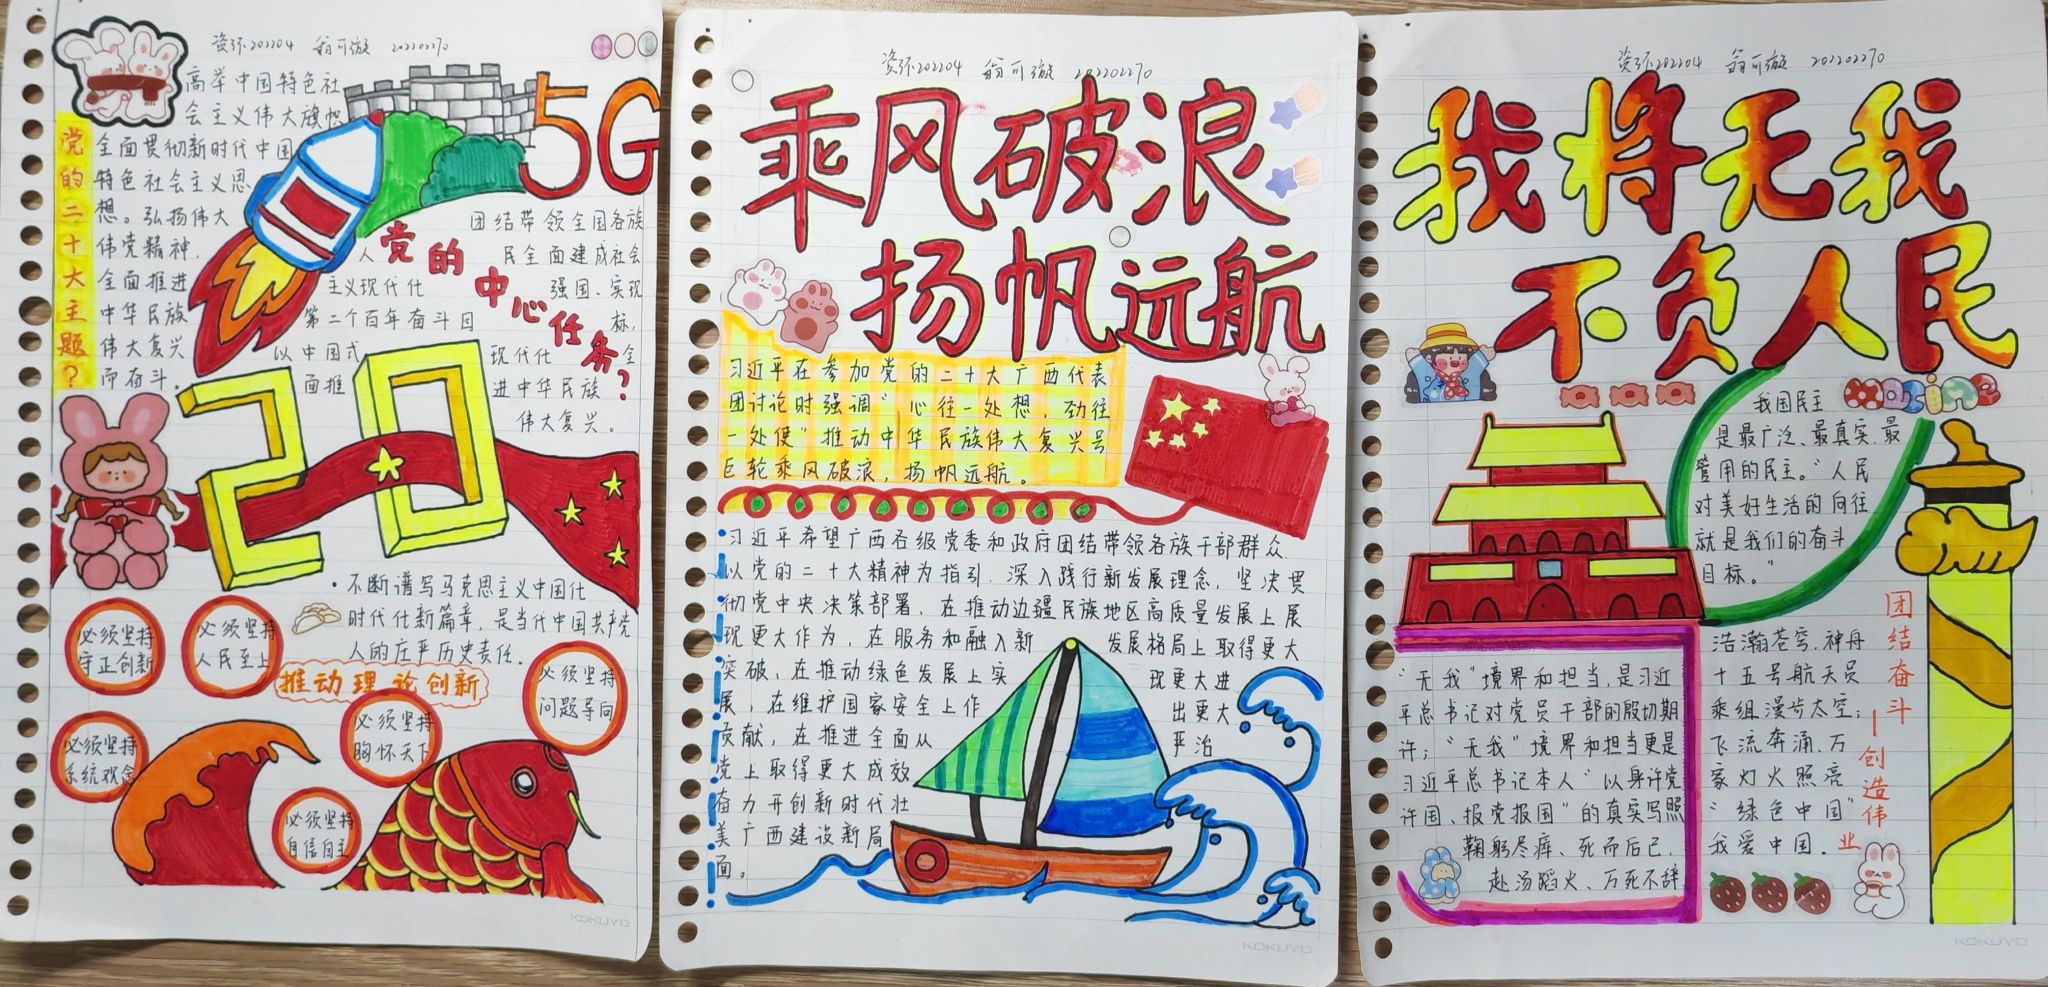 资环202204 翁可璇 202202270
5G
党的二十大主题?
高举中国特色社
会主义伟大旗帜
全面贯彻新时代中国
特色社会主义思
想。弘扬伟大
伟党精神,
全面推进
中华民族
伟大复兴
而奋斗。
党的中心任务?
团结带领全国各族
人民全面建成社会
主义现代化强国、实现
第二个百年奋斗目标,
以中国式现代化全
面推进中华民族
伟大复兴。
20
·不断谱写马克思主义中国化
时代化新篇章,是当代中国共产党
人的庄严历史责任。
推动理论创新
必须坚持
守正创新
必须坚持
人民至上
必须坚持
问题导向
必须坚持
系统观念
必须坚持
胸怀天下
必须坚持
自信自主
KOKUYO
资环202204 翁可璇 202202270
乘风破浪
扬帆远航
习近平在参加党的二十大广西代表
团讨论时强调“心往一处想,劲往
一处使”推动中华民族伟大复兴号
巨轮乘风破浪,扬帆远航。
习近平希望广西各级党委和政府团结带领各族干部群众,
以党的二十大精神为指引,深入践行新发展理念,坚决贯
彻党中央决策部署,在推动边疆民族地区高质量发展上展
现更大作为,在服务和融入新发展格局上取得更大
突破,在推动绿色发展上实现更大进
展,在维护国家安全上作出更大
贡献,在推进全面从严治
党上取得更大成效
奋力开创新时代壮
美广西建设新局
面。
KOKUYO
资环202204 翁可璇 202202270
我将无我
不负人民
我国民主
是最广泛、最真实、最
管用的民主。“人民
对美好生活的向往
就是我们的奋斗
目标。”
“无我”境界和担当,是习近
平总书记对党员干部的殷切期
许;“无我”境界和担当更是
习近平总书记本人“以身许党
许国、报党报国”的真实写照
鞠躬尽瘁、死而后已,
赴汤蹈火、万死不辞
浩瀚苍穹,神舟
十五号航天员
乘组漫步太空;
飞流奔涌、万
家灯火照亮
“绿色中国”
我爱中国。
团结奋斗—创造伟业
KOKUYO